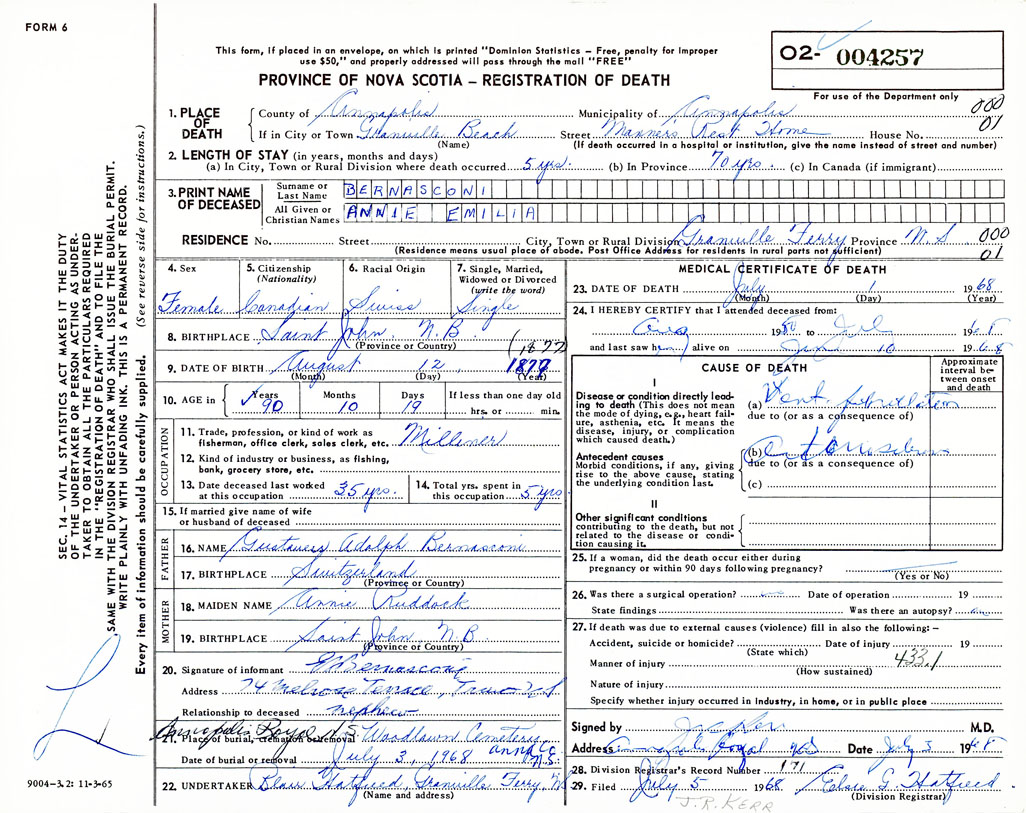 FORM 6
This form, if placed in an envelope, on which is printed "Dominion Statistics – Free, penalty for improper
use $50," and properly addressed will pass through the mail "FREE"
PROVINCE OF NOVA SCOTIA – REGISTRATION OF DEATH
O2- 004257
For use of the Department only
000
01
1. PLACE OF DEATH
County of Annapolis Municipality of Annapolis
If in City or Town Granville Beach Street Manners Rest Home House No.
(Name) (If death occurred in a hospital or institution, give the name instead of street and number)
2. LENGTH OF STAY (in years, months and days)
(a) In City, Town or Rural Division where death occurred 5 yrs. (b) In Province 70 yrs. (c) In Canada (if immigrant)
3. PRINT NAME OF DECEASED
Surname or Last Name BERNASCONI
All Given or Christian Names ANNIE EMILIA
RESIDENCE No. Street City, Town or Rural Division Granville Ferry Province N.S 000
(Residence means usual place of abode. Post Office Address for residents in rural parts not sufficient) 01
4. Sex
Female
5. Citizenship
(Nationality)
Canadian
6. Racial Origin
Swiss
7. Single, Married,
Widowed or Divorced
(write the word)
Single
8. BIRTHPLACE Saint John, N.B.
(Province or Country)
(1877
9. DATE OF BIRTH August 12 1877
(Month) (Day) (Year)
10. AGE in
Years
90
Months
10
Days
19
If less than one day old
hrs. or min.
OCCUPATION
11. Trade, profession, or kind of work as
fisherman, office clerk, sales clerk, etc. Milliner
12. Kind of industry or business, as fishing,
bank, grocery store, etc.
13. Date deceased last worked
at this occupation 35 yrs.
14. Total yrs. spent in
this occupation 5 yrs
15. If married give name of wife
or husband of deceased
FATHER
16. NAME Gustavus Adolph Bernasconi
17. BIRTHPLACE Switzerland
(Province or Country)
MOTHER
18. MAIDEN NAME Annie Ruddock
19. BIRTHPLACE Saint John N.B.
(Province or Country)
20. Signature of informant Bernasconi
Address 74 Melrose Terrace, Truro N.S.
Relationship to deceased nephew
Annapolis Royal N.S. Woodlawn Cemetery
21. Place of burial, cremation or removal
Anna Co N.S.
Date of burial or removal July 3, 1968
22. UNDERTAKER Blair Hatfield, Granville Ferry, N.S
(Name and address)
MEDICAL CERTIFICATE OF DEATH
23. DATE OF DEATH July 1 1968
(Month) (Day) (Year)
24. I HEREBY CERTIFY that I attended deceased from:
Aug 19 to Jul 1968
and last saw h alive on 10 1968
CAUSE OF DEATH
Approximate
interval be-
tween onset
and death
I
Disease or condition directly lead-
ing to death (This does not mean
the mode of dying, e.g., heart fail-
ure, asthenia, etc. It means the
disease, injury, or complication
which caused death.)
(a) Vent. fibrillation
due to (or as a consequence of)
Antecedent causes
Morbid conditions, if any, giving
rise to the above cause, stating
the underlying condition last.
(b)
due to (or as a consequence of)
(c)
II
Other significant conditions
contributing to the death, but not
related to the disease or condi-
tion causing it.
25. If a woman, did the death occur either during
pregnancy or within 90 days following pregnancy?
(Yes or No)
26. Was there a surgical operation? Date of operation 19
State findings Was there an autopsy?
27. If death was due to external causes (violence) fill in also the following: –
Accident, suicide or homicide? Date of injury 19
(State which)
433.1
Manner of injury
(How sustained)
Nature of injury
Specify whether injury occurred in industry, in home, or in public place
Signed by M.D.
Address: Royal Date July 3 1968
28. Division Registrar's Record Number 171
29. Filed July 5 1968 Elsie G. Hatfield
(Division Registrar)
J.R. KERR
SEC. 14 – VITAL STATISTICS ACT MAKES IT THE DUTY
OF THE UNDERTAKER OR PERSON ACTING AS UNDER-
TAKER TO OBTAIN ALL THE PARTICULARS REQUIRED
IN THE "REGISTRATION OF DEATH" AND TO FILE THE
SAME WITH THE DIVISION REGISTRAR WHO SHALL ISSUE THE BURIAL PERMIT.
WRITE PLAINLY WITH UNFADING INK. THIS IS A PERMANENT RECORD.
Every item of information should be carefully supplied. (See reverse side for instructions.)
9004–3.2: 11-3-65